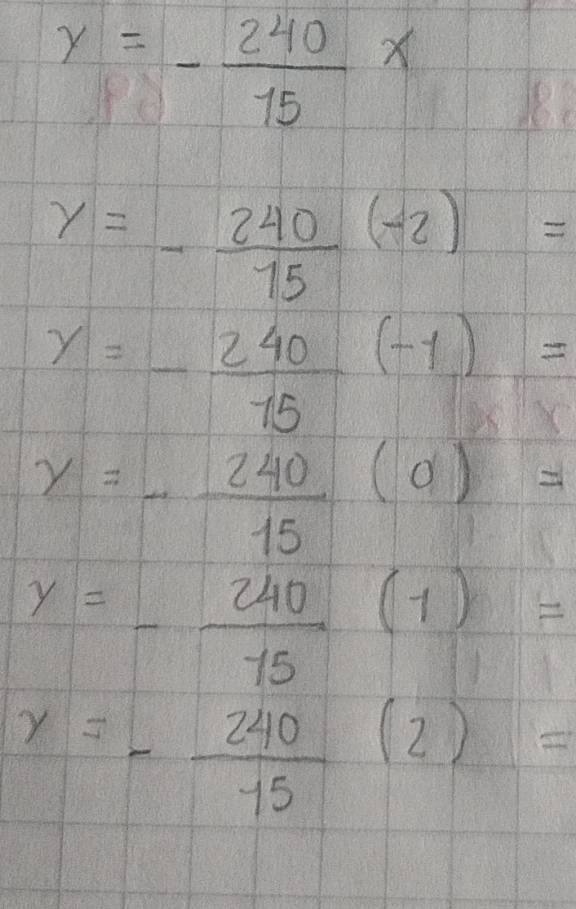 y = - 240/15 x
y = - 240/15 (-2) =
y = - 240/15 (-1) =
y = - 240/15 (0) =
y = - 240/15 (1) =
y = - 240/15 (2) =